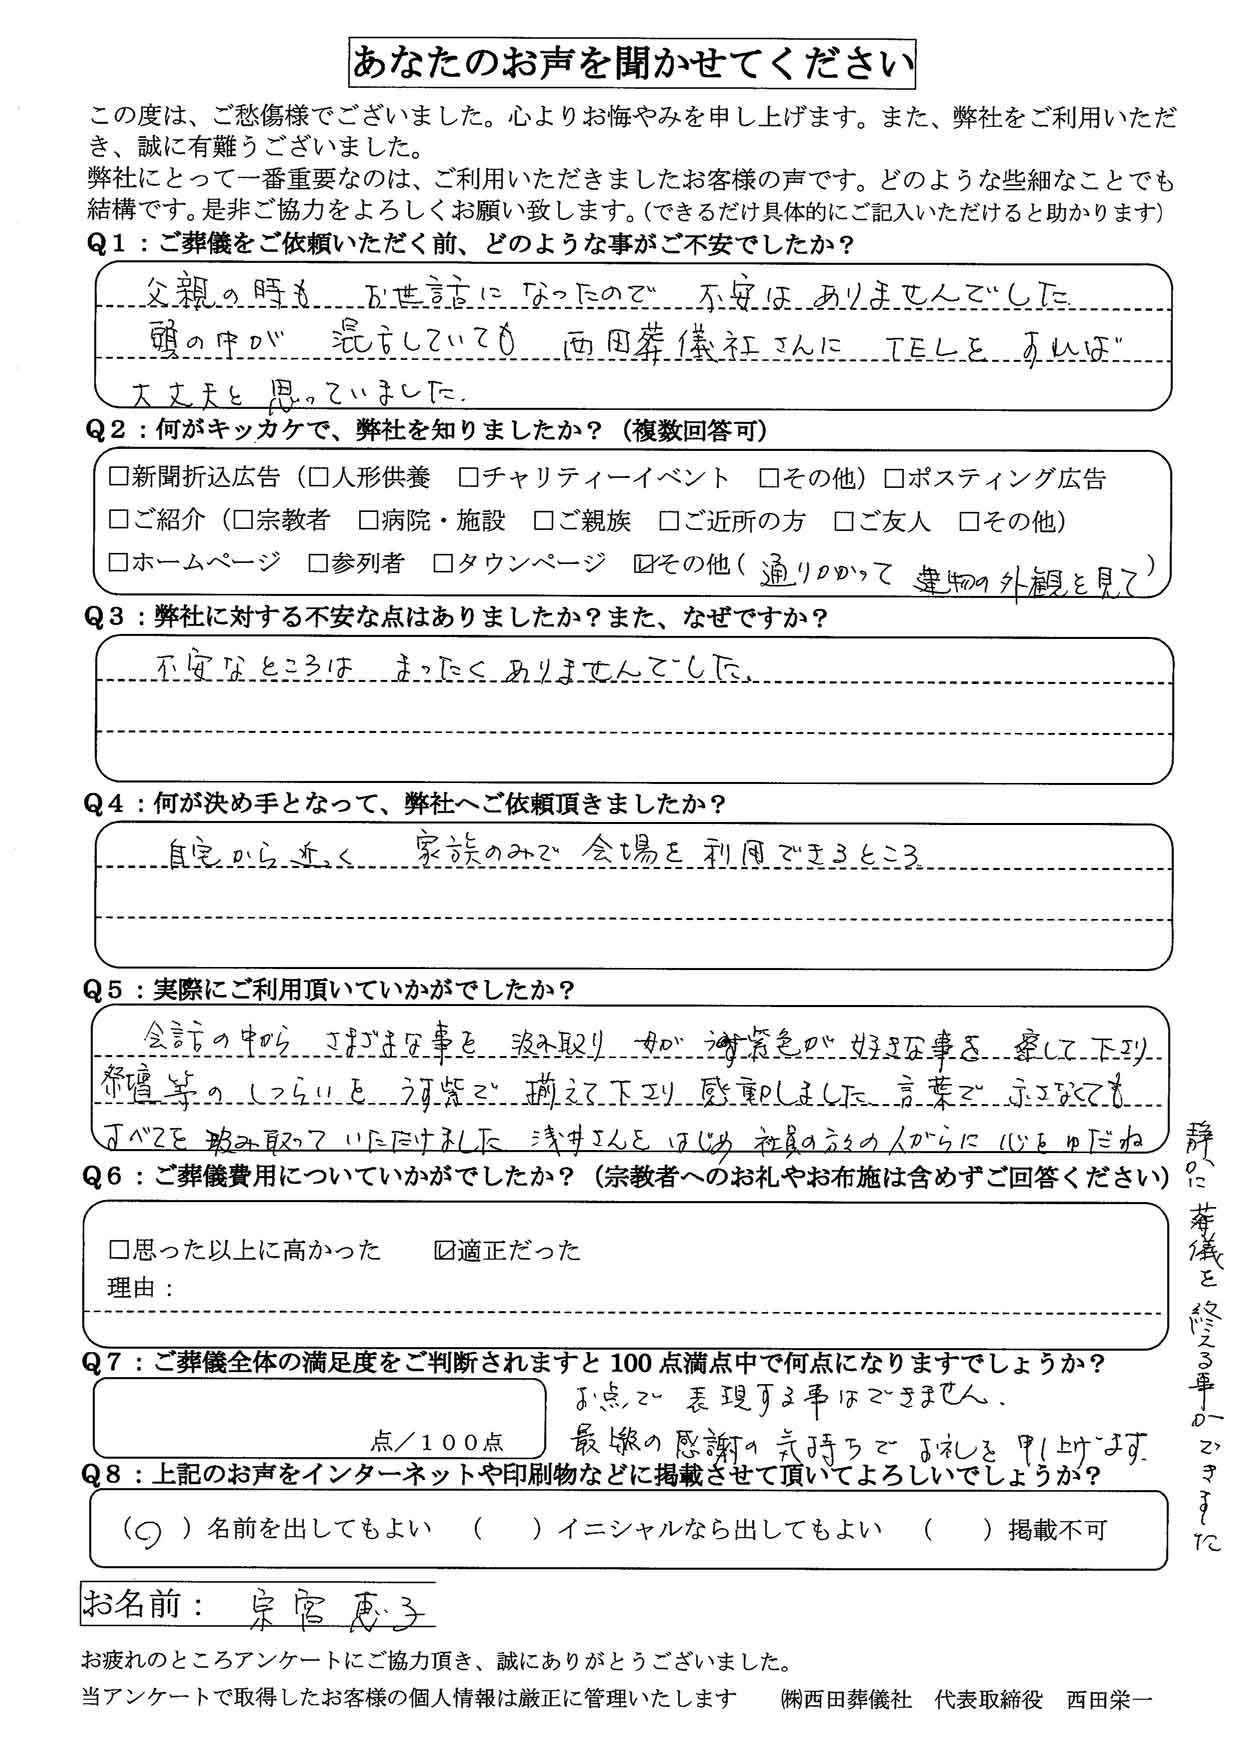 あなたのお声を聞かせてください
この度は、ご愁傷様でございました。心よりお悔やみを申し上げます。また、弊社をご利用いただ
き、誠に有難うございました。
弊社にとって一番重要なのは、ご利用いただきましたお客様の声です。どのような些細なことでも
結構です。是非ご協力をよろしくお願い致します。（できるだけ具体的にご記入いただけると助かります）
Q1：ご葬儀をご依頼いただく前、どのような事がご不安でしたか？
父親の時も お世話になったので 不安はありませんでした
頭の中が 混乱していても 西田葬儀社さんに TELをすれば
大丈夫と思っていました。
Q2：何がキッカケで、弊社を知りましたか？（複数回答可）
□新聞折込広告（□人形供養 □チャリティーイベント □その他）□ポスティング広告
□ご紹介（□宗教者 □病院・施設 □ご親族 □ご近所の方 □ご友人 □その他）
□ホームページ □参列者 □タウンページ ☑その他（通りかかって 建物の外観を見て）
Q3：弊社に対する不安な点はありましたか？また、なぜですか？
不安なところは まったくありませんでした。
Q4：何が決め手となって、弊社へご依頼頂きましたか？
自宅から近く 家族のみで会場を利用できるところ
Q5：実際にご利用頂いていかがでしたか？
会話の中から さまざまな事を 汲み取り 母が うす紫色が 好きな事を 察して下さり
祭壇等の しつらいを うす紫で 揃えて下さり 感動しました 言葉で 示さなくても
すべてを 汲み取って いただけました 浅井さんを はじめ 社員の方々の人がらに 心をゆだね
静かに 葬儀を 終える事ができました
Q6：ご葬儀費用についていかがでしたか？（宗教者へのお礼やお布施は含めずご回答ください）
□思った以上に高かった ☑適正だった
理由：
Q7：ご葬儀全体の満足度をご判断されますと 100 点満点中で何点になりますでしょうか？
点／１００点
お点で 表現する事はできません。
最上級の 感謝の 気持ちで お礼を 申し上げます。
Q8：上記のお声をインターネットや印刷物などに掲載させて頂いてよろしいでしょうか？
（○）名前を出してもよい （ ）イニシャルなら出してもよい （ ）掲載不可
お名前： 宗宮 恵子
お疲れのところアンケートにご協力頂き、誠にありがとうございました。
当アンケートで取得したお客様の個人情報は厳正に管理いたします ㈱西田葬儀社 代表取締役 西田栄一